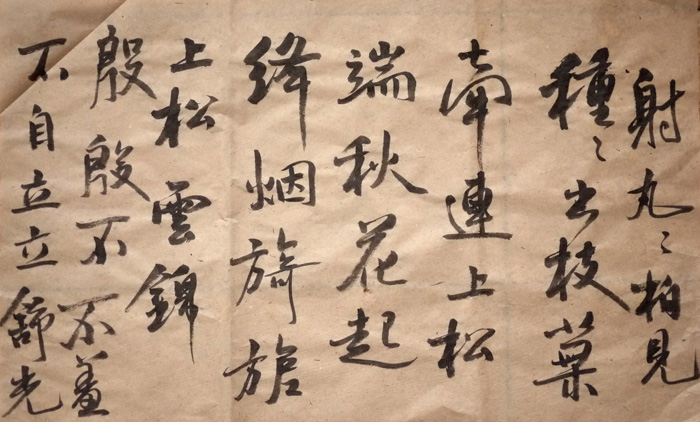 射丸〻柏見
種〻出枝葉
牽連上松
端秋花起
絳烟旖旎
上松雲錦
殷殷不不羞
不自立立舒光